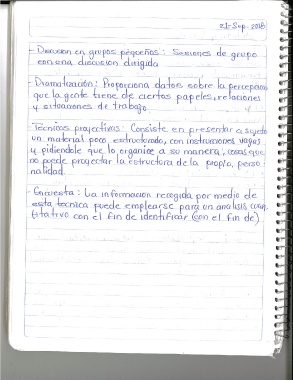 21-Sep-2018
- Discusion en grupos pequeños: Sesiones de grupo
con una discusion dirigida
- Dramatización: Proporciona datos sobre la percepcion
que la gente tiene de ciertos papeles, relaciones
y situaciones de trabajo.
Técnicas proyectivas: Consiste en presentar a sujeto
un material poco estructurado, con instrucciones vagas
y pidiendole que lo organice a su manera, cosas que
no puede proyectar la estructora de la propia, perso
nalidad.
- Encuesta: La información recogida por medio de
esta tecnica puede emplearse para un analisis cuan
titativo con el fin de identificar (con el fin de)